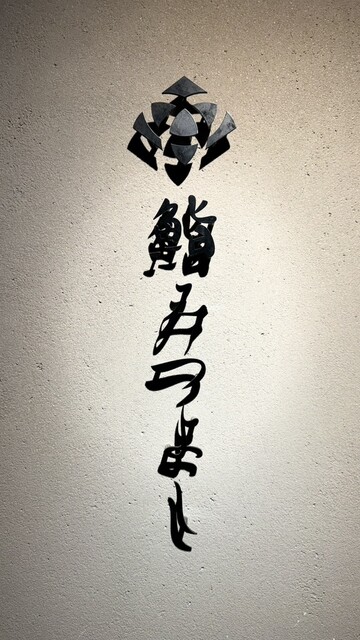 鮨みつまし